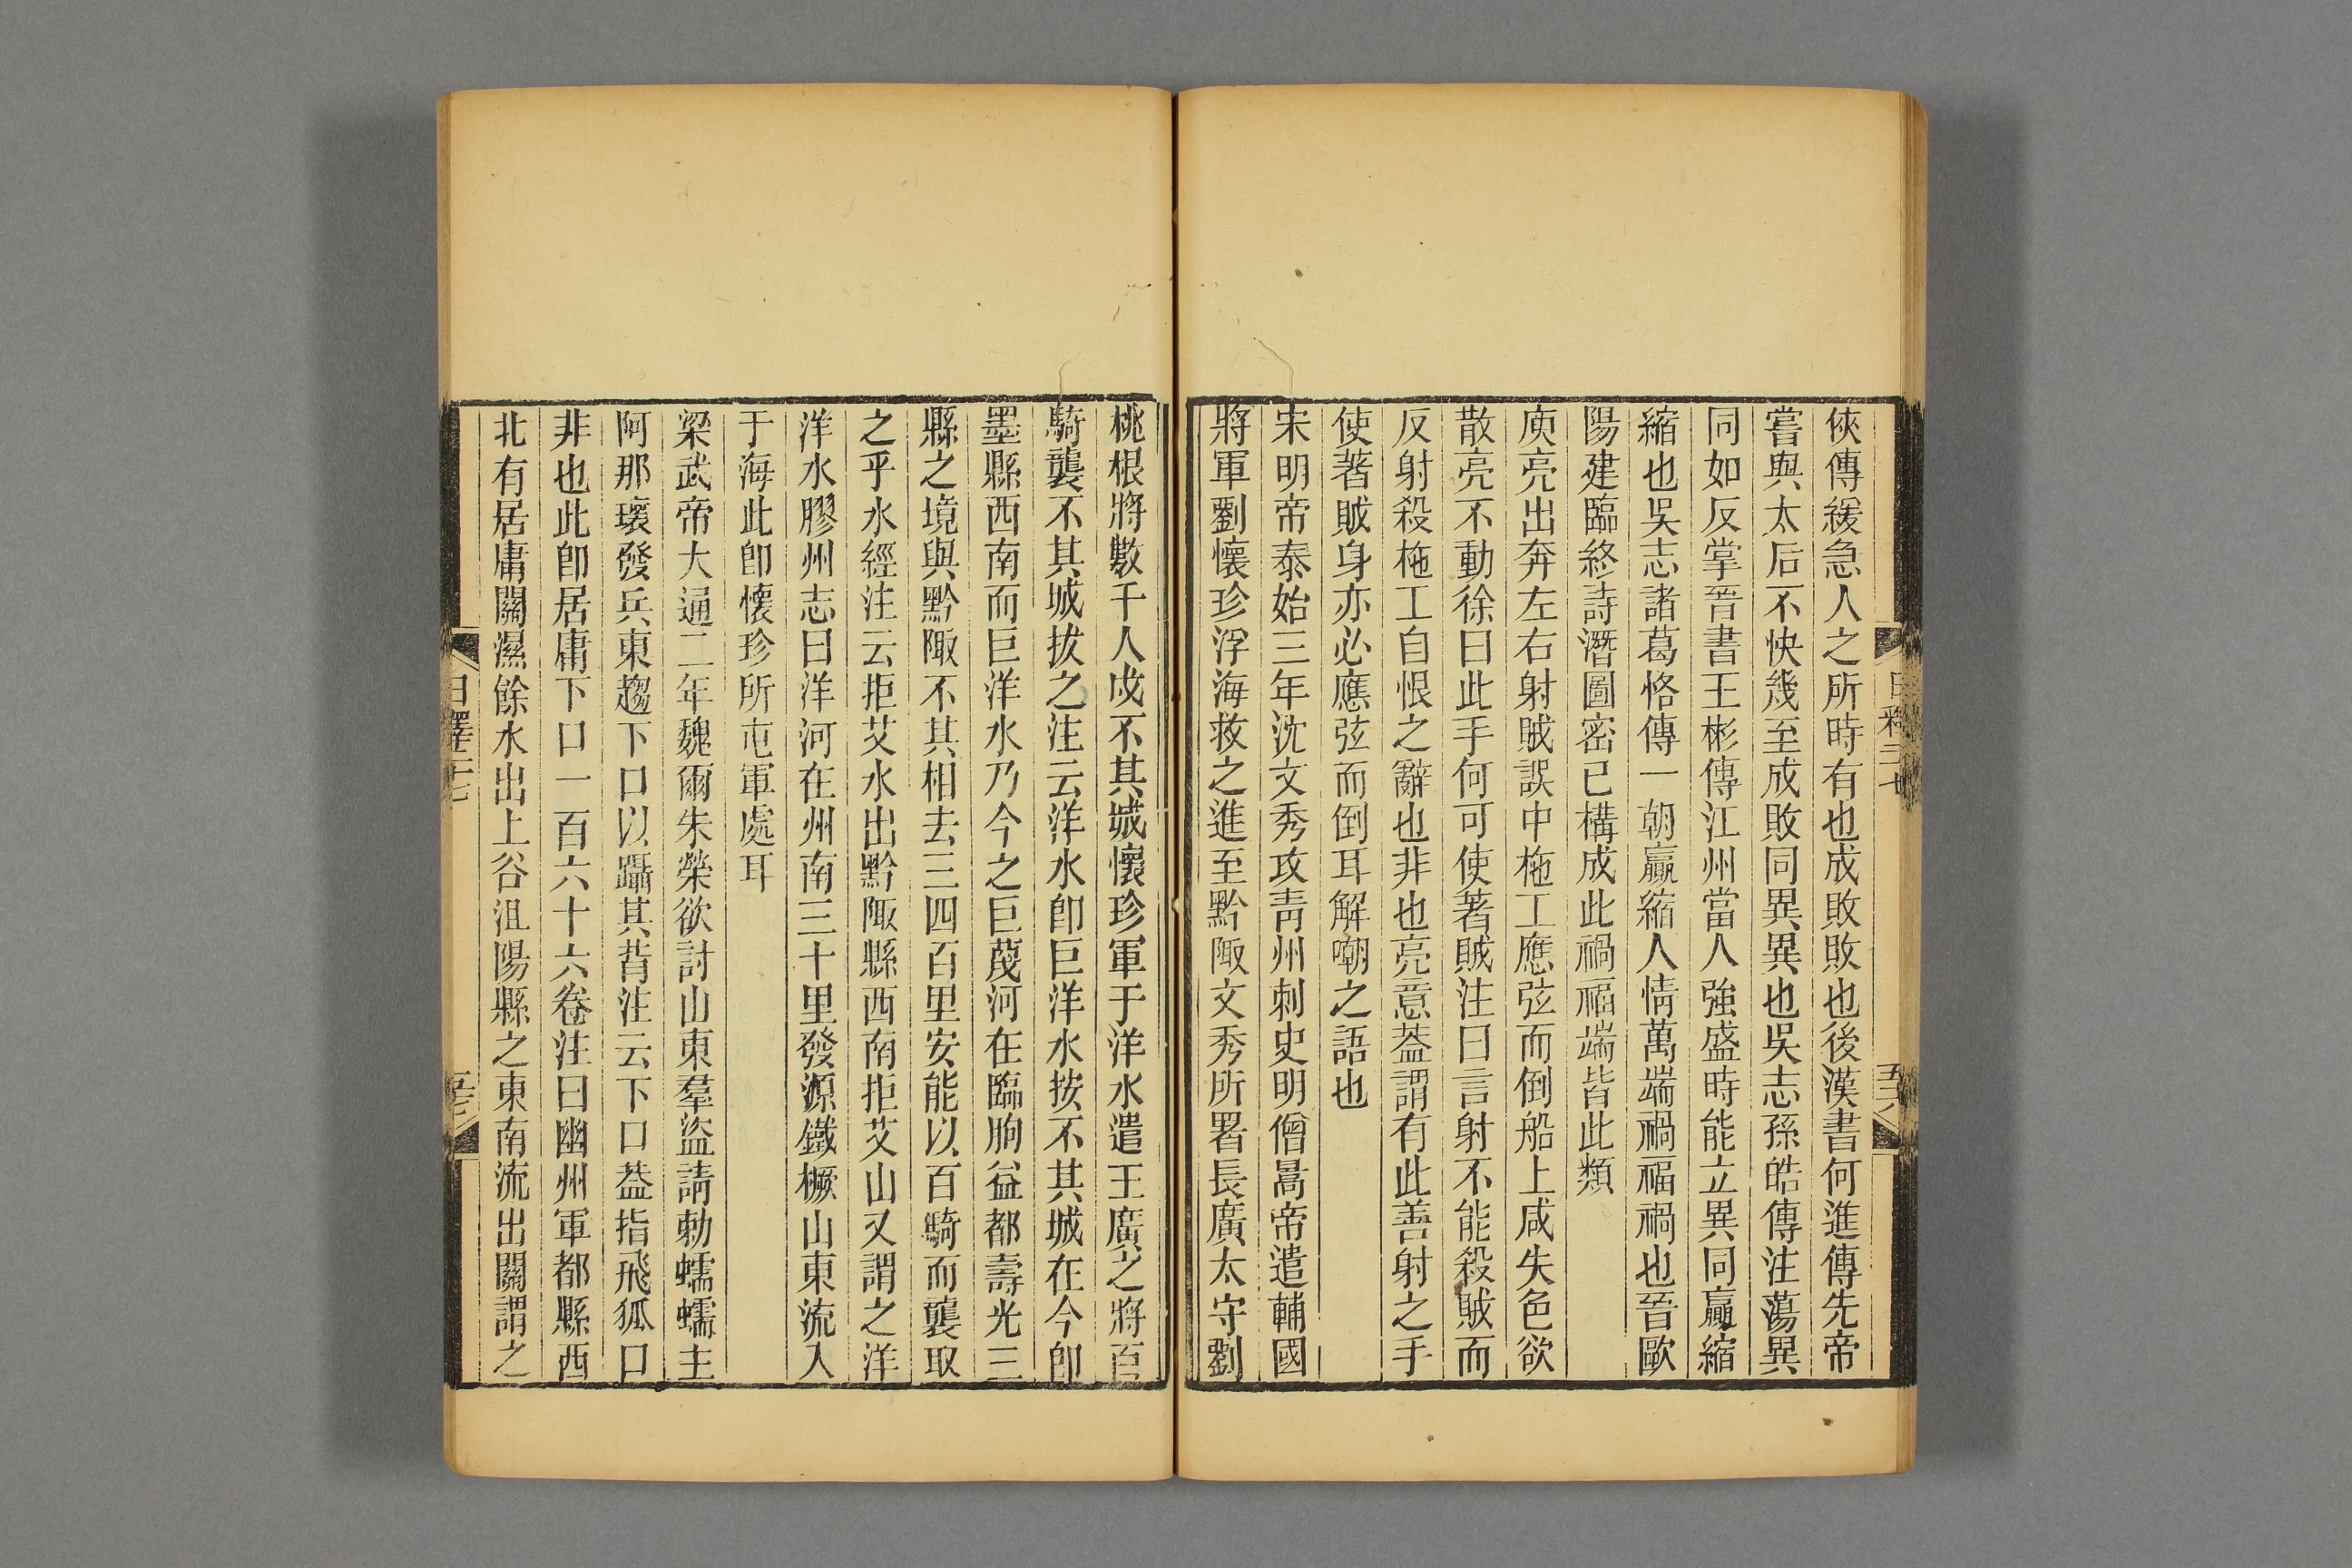 俠傳緩急人之所時有也成敗敗也後漢書何進傳先帝
嘗與太后不快幾至成敗同異異也吳志孫皓傳注蕩異
同如反掌晉書王彬傳江州當人強盛時能立異同贏縮
縮也吳志諸葛恪傳一朝贏縮人情萬端禍福禍也晉歐
陽建臨終詩潛圖密已構成此禍福端皆此類
庾亮出奔左右射賊誤中柂工應弦而倒船上咸失色欲
散亮不動徐曰此手何可使著賊注曰言射不能殺賊而
反射殺柂工自恨之辭也非也亮意葢謂有此善射之手
使著賊身亦必應弦而倒耳解嘲之語也
宋明帝泰始三年沈文秀攻青州刺史明僧暠帝遣輔國
將軍劉懷珍浮海救之進至黔陬文秀所署長廣太守劉
桃根將數千人戍不其城懷珍軍于洋水遣王廣之將百
騎襲不其城拔之注云洋水卽巨洋水按不其城在今卽
墨縣西南而巨洋水乃今之巨蔑河在臨朐益都壽光三
縣之境與黔陬不其相去三四百里安能以百騎而襲取
之乎水經注云拒艾水出黔陬縣西南拒艾山又謂之洋
洋水膠州志曰洋河在州南三十里發源鐵橛山東流入
于海此卽懷珍所屯軍處耳
梁武帝大通二年魏爾朱榮欲討山東羣盜請勅蠕蠕主
阿那瓌發兵東趨下口以躡其背注云下口葢指飛狐口
非也此卽居庸下口一百六十六卷注曰幽州軍都縣西
北有居庸關濕餘水出上谷沮陽縣之東南流出關謂之